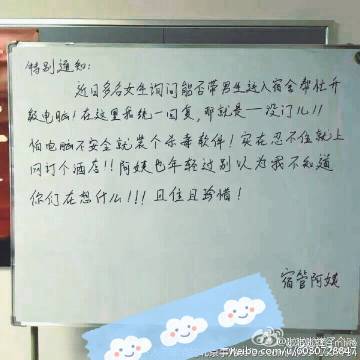 特别通知:
近日多名女生询问能否带男生进入宿舍帮忙升
级电脑!在这里我统一回复,那就是——没门儿!!
怕电脑不安全就装个杀毒软件!实在忍不住就上
网订个酒店!!阿姨也年轻过别以为我不知道
你们在想什么!!!且住且珍惜!
宿管阿姨